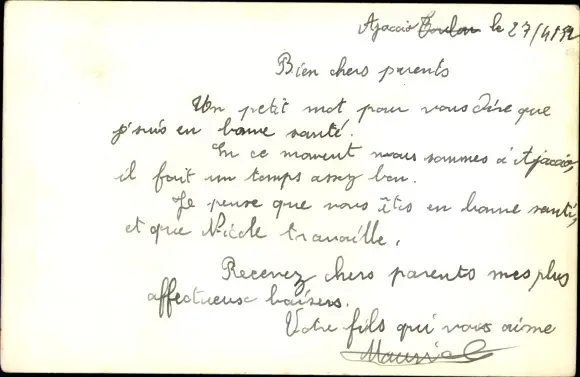 Ajaccio Toulon le 27/4/52
Bien chers parents
Un petit mot pour vous dire que
j'suis en bonne santé.
En ce moment nous sommes à Ajaccio,
il fait un temps assez bon.
Je pense que vous êtes en bonne santé,
et que Nicole travaille.
Recevez chers parents mes plus
affectueux baisers.
Votre fils qui vous aime
Maurice